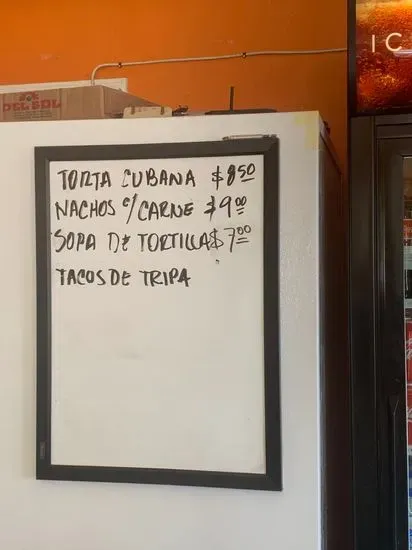 DEL SOL
IC
TORTA CUBANA $8.50
NACHOS c/ CARNE $9.00
SOPA DE TORTILLA $7.00
TACOS DE TRIPA